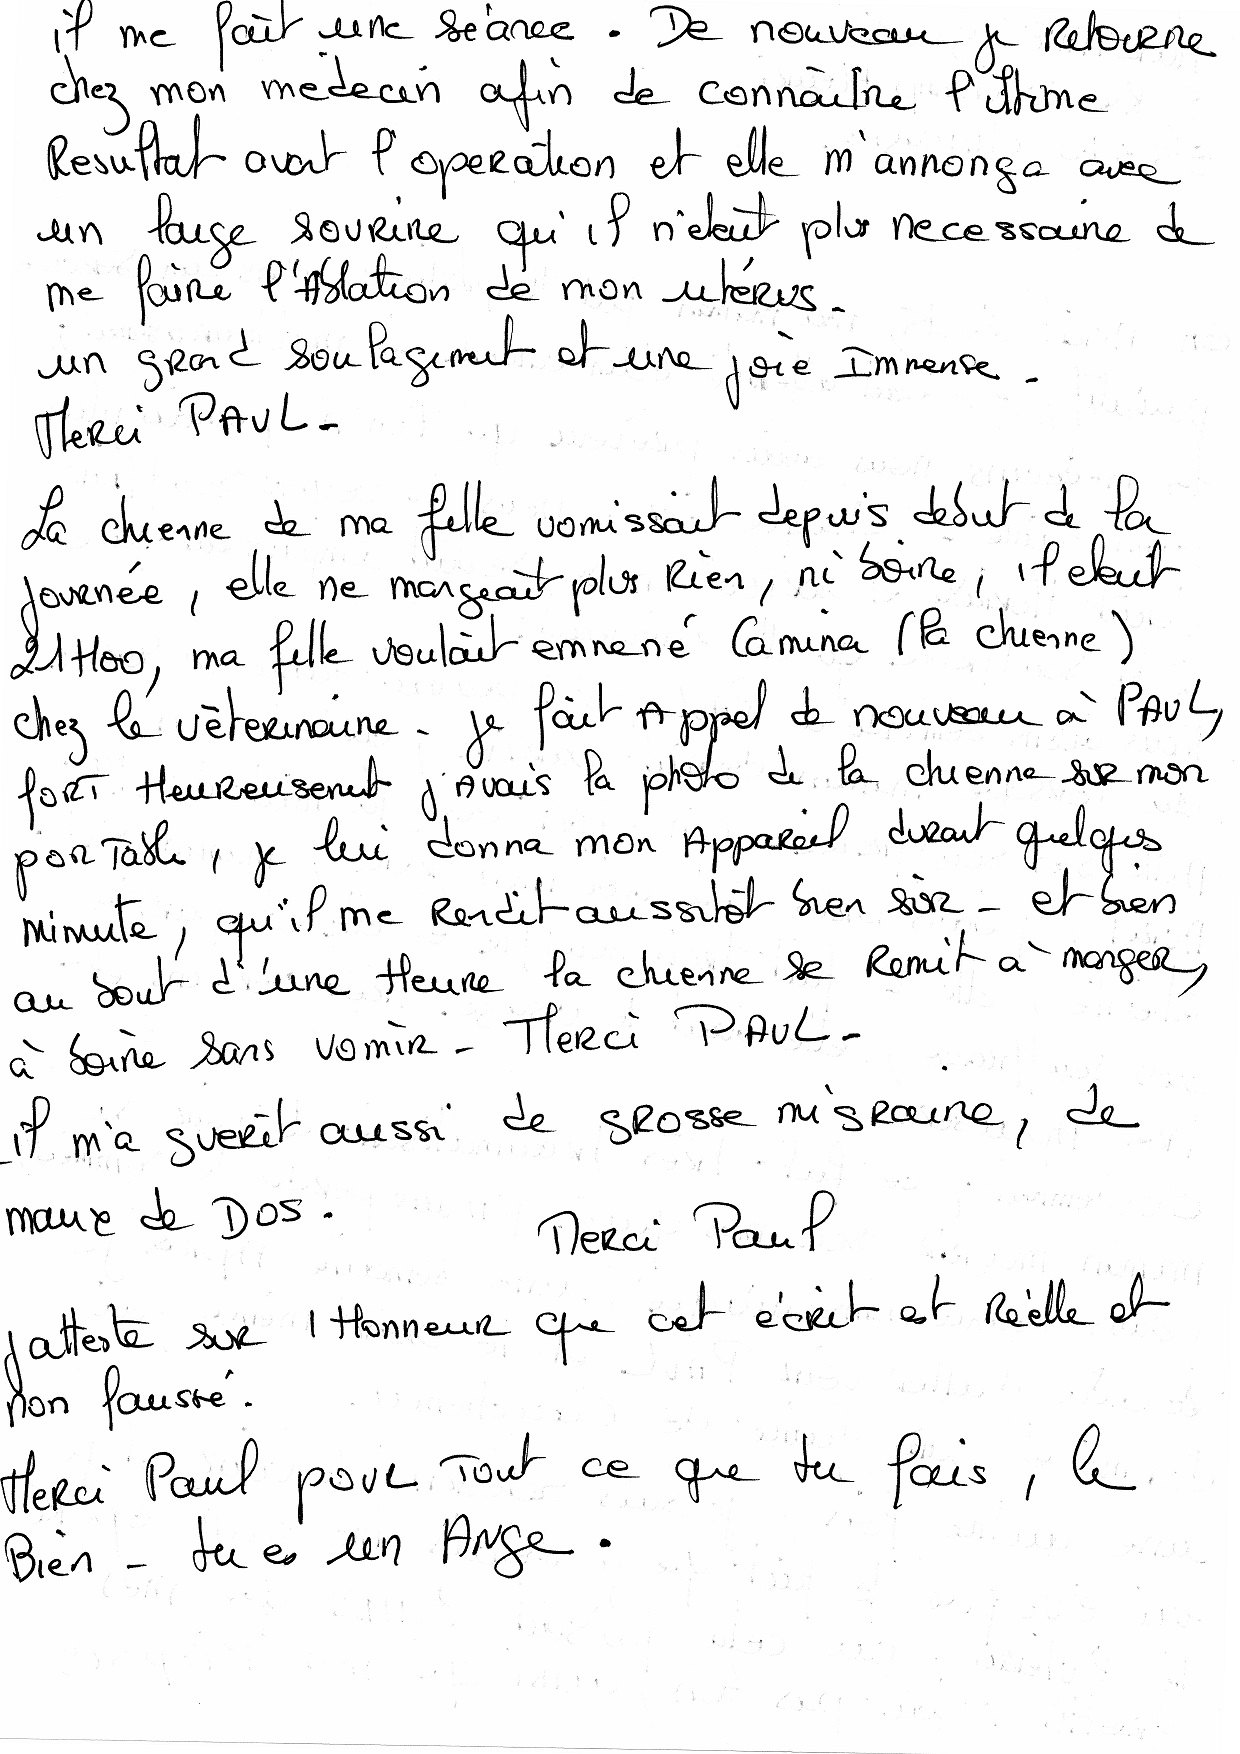 il me fait une séance. De nouveau je Retourne
chez mon medecin afin de connaître l'ultime
Resultat avant l'operation et elle m'annonça avec
un large sourire qu'il n'etait plus necessaire de
me faire l'Ablation de mon utérus.
un grand soulagement et une joie Immense.
Merci PAUL.
La chienne de ma fille vomissait depuis debut de la
journée, elle ne mangeait plus Rien, ni boire, il etait
21H00, ma fille voulait emnené Camina (la chienne)
chez le vèterinaire. je fait Appel de nouveau à PAUL,
fort Heureusement j'Avais la photo de la chienne sur mon
portable, je lui donna mon Appareil durant quelques
minute, qu'il me Rendit aussitôt bien sûr - et bien
au bout d'une Heure la chienne se Remit a manger,
à boire sans vomir - Merci PAUL -
il m'a guerit aussi de grosse migraine, de
maux de DOS.
Merci Paul
j'atteste sur l'Honneur que cet écrit est Réelle et
non faussé.
Merci Paul pour Tout ce que tu fais, le
Bien - tu es un Ange.